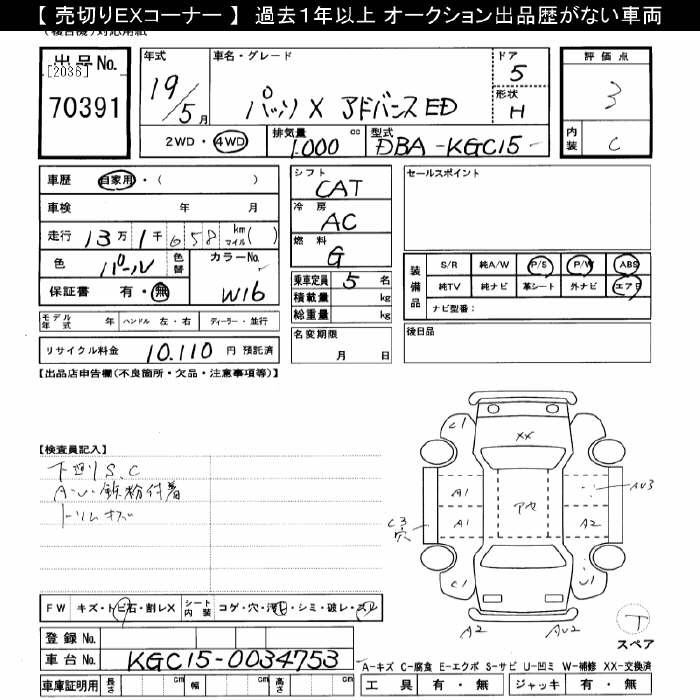 【 売切りEXコーナー 】 過去1年以上 オークション出品歴がない車両
出品No.
[2036]
70391
年式
19/5月
車名・グレード
パッソ X アドバンスED
ドア
5
形状
H
評価点
3
内装
C
2WD・4WD
排気量
1.000 cc
型式
DBA-KGC15
車歴 自家用・( )
車検 年 月
走行 13万1千658 km マイル( )
色 パール 色替
カラーNo. W16
保証書 有・無
モデル年式 年 ハンドル 左・右 ディーラー・並行
リサイクル料金 10.110 円 預託済
シフト
CAT
冷房
AC
燃料
G
乗車定員 5 名
積載量 kg
総重量 kg
名変期限
月 日
セールスポイント
装備品
S/R 純A/W P/S P/W ABS
純TV 純ナビ 革シート 外ナビ エアB
ナビ型名:
後日品
【出品店申告欄(不良箇所・欠品・注意事項等)】
【検査員記入】
下廻りS.C
A・U・鉄粉付着
トリムキズ
C1
XX
A1
アセ
AU3
C3
穴
A1
A2
C1
U1
A2
AU2
T
スペア
FW キズ・トビ石・割レX シート内装 コゲ・穴・汚レ・シミ・破レ・スレ
登録No.
車台No. KGC15-0034753
車庫証明用 長さ cm 幅 cm 高さ cm
A-キズ C-腐食 E-エクボ S-サビ U-凹ミ W-補修 XX-交換済
工具 有・無 ジャッキ 有・無